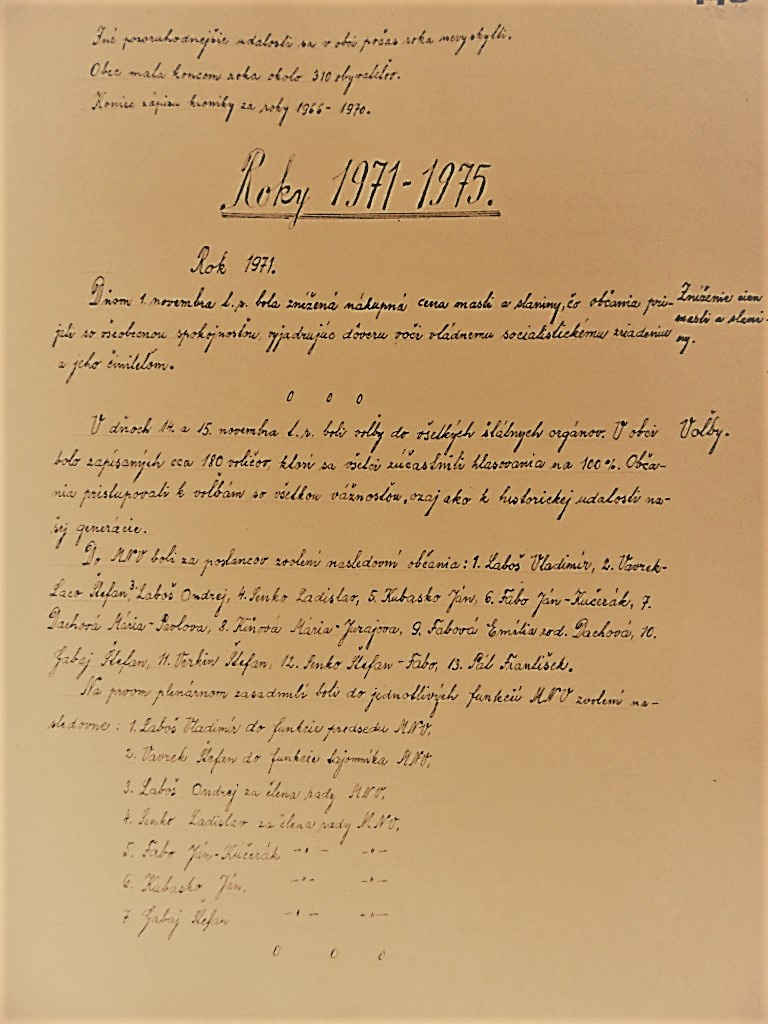 Iné pozoruhodnejšie udalosti sa v obci počas roka nevyskytli.
Obec mala koncom roka okolo 310 obyvateľov.
Koniec zápisu kroniky za roky 1966 - 1970.
Roky 1971-1975.
Rok 1971.
Dňom 1. novembra t. r. bola znížená nákupná cena masti a slaniny, čo občania pri-
jali so všeobecnou spokojnosťou, vyjadrujúc dôveru voči vládnemu socialistickému zriadeniu
a jeho činiteľom.
Zníženie cien
masti a slani-
ny.
o o o
V dňoch 14. a 15. novembra t. r. boli voľby do všetkých štátnych orgánov. V obci
bolo zapísaných cca 180 voličov, ktorí sa všetci zúčastnili hlasovania na 100%. Obča-
nia pristupovali k voľbám so všetkou vážnosťou, ozaj ako k historickej udalosti na-
šej generácie.
Voľby.
Do MNV boli za poslancov zvolení nasledovní občania: 1. Laboš Vladimír, 2. Vavrek-
Laco Štefan, 3. Laboš Ondrej, 4. Senko Ladislav, 5. Kubasko Ján, 6. Fabo Ján-Kučerák, 7.
Dachová Mária-Pavlova, 8. Kĺnová Mária-Jurajova, 9. Fabová Emília rod. Dachová, 10.
Gabaj Štefan, 11. Verkin Štefan, 12. Senko Štefan-Fabo, 13. Pál František.
Na prvom plenárnom zasadnutí boli do jednotlivých funkcií MNV zvolení na-
sledovne: 1. Laboš Vladimír do funkcie predsedu MNV,
2. Vavrek Štefan do funkcie tajomníka MNV,
3. Laboš Ondrej za člena rady MNV,
4. Senko Ladislav za člena rady MNV,
5. Fabo Ján-Kučerák -"- -"-
6. Kubasko Ján, -"- -"-
7. Gabaj Štefan -"- -"-
o o o